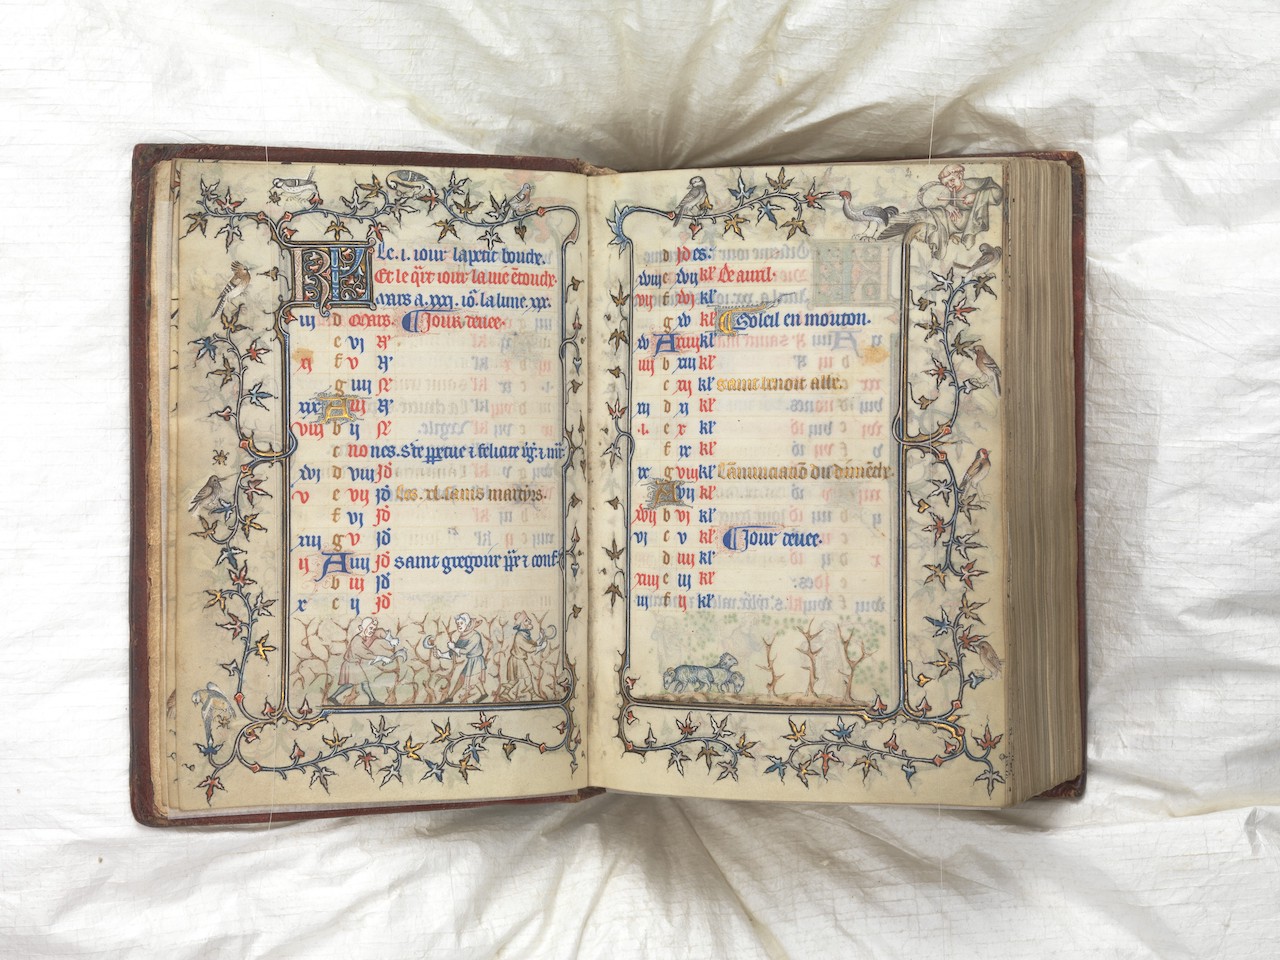 KL Le .i. iour la petit bouche.
Et le qrt iour la uie etouche.
Mars a .xxxj. io. la lune .xxx.
iij d Mars. Jour deuee.
e vj
xj f v
g iiij
xix A iij
viij ij
c nones. Ste ppetue i felicite
xvj d viij jd
v e vij jd les .xl. sains martyrs.
f vj jd
xiij g v jd
ij A iiij jd saint gregoire ppe i conf.
b iij jd
x c ij jd
d jdes:
xviij e xvij kl' De auril.
vij f xvj kl'
g xv kl' Soleil en mouton.
xv A xiiij kl'
iiij b xiij kl'
c xij kl' saint benoit abe.
xij d xj kl'
.i. e x kl'
f ix kl'
ix g viij kl' Lanunciacio du dimecle.
A vij kl'
xvij b vj kl'
vj c v kl' Jour deuee.
d iiij kl'
xiiij e iij kl'
iij f ij kl'